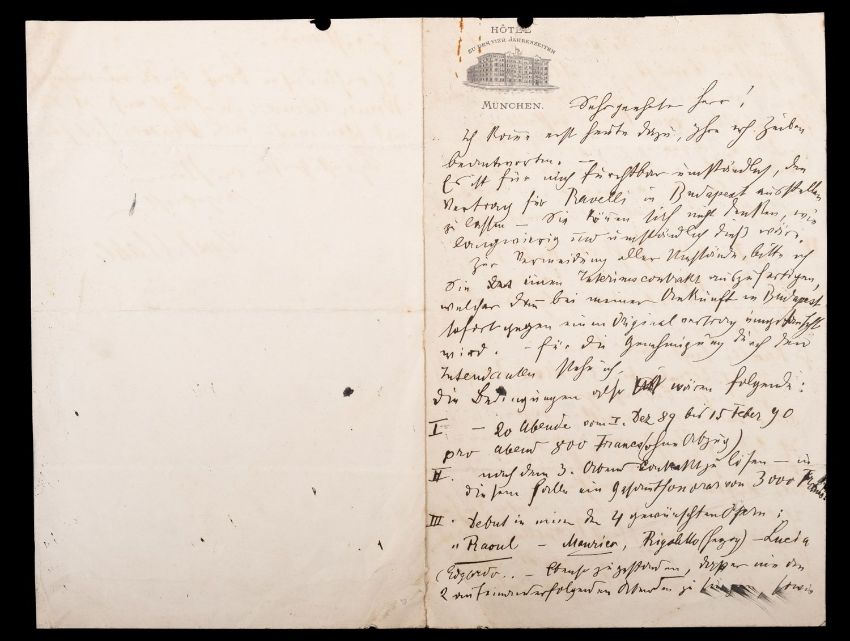 HÔTEL
ZU DEN VIER JAHRESZEITEN
MÜNCHEN.
Sehr geehrter Herr!
Ich komme erst heute dazu, Ihre Zeilen
beantworten. –
Es ist für mich furchtbar umständlich, den
Vertrag für Ravelli in Budapest ausstellen
zu lassen – Sie können sich nicht denken, wie
langwierig und umständlich dieß wäre.
Zur Vermeidung aller Umstände, bitte ich
Sie einen Interimscontrakt auszufertigen,
welcher dann bei meiner Ankunft in Budapest
sofort gegen einen Originalvertrag umgetauscht
wird. – Für die Genehmigung durch den
Intendanten stehe ich.
Die Bedingungen also wären folgende:
I. – 20 Abende vom I. Dez 89 bis 15 Feber 90
pro Abend 800 Francs (ohne Abzug)
II. nach dem 3. Abend Contakt zu lösen – in
diesem Falle ein Gesammthonorar von 3000
III. Debut in einer der 4 gewünschten Opern:
„Raoul – Maurico, Rigoletto (Herzog) – Lucia
(Edgardo.. – Ebenso zugestanden, daß er nie an
2 aufeinanderfolgenden Abenden zu singen sowie